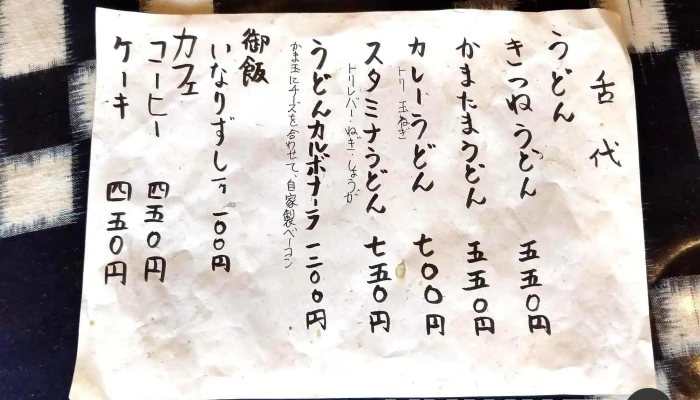 舌代
うどん
きつねうどん 五五〇円
かまたまうどん 五五〇円
カレーうどん 七〇〇円
トリ 玉ねぎ
スタミナうどん 七五〇円
トリレバー・ねぎ・しょうが
うどんカルボナーラ 一二〇〇円
かま玉にチーズを合わせて、自家製ベーコン
御飯
いなりずし一ヶ 一〇〇円
カフェ
コーヒー 四五〇円
ケーキ 四五〇円